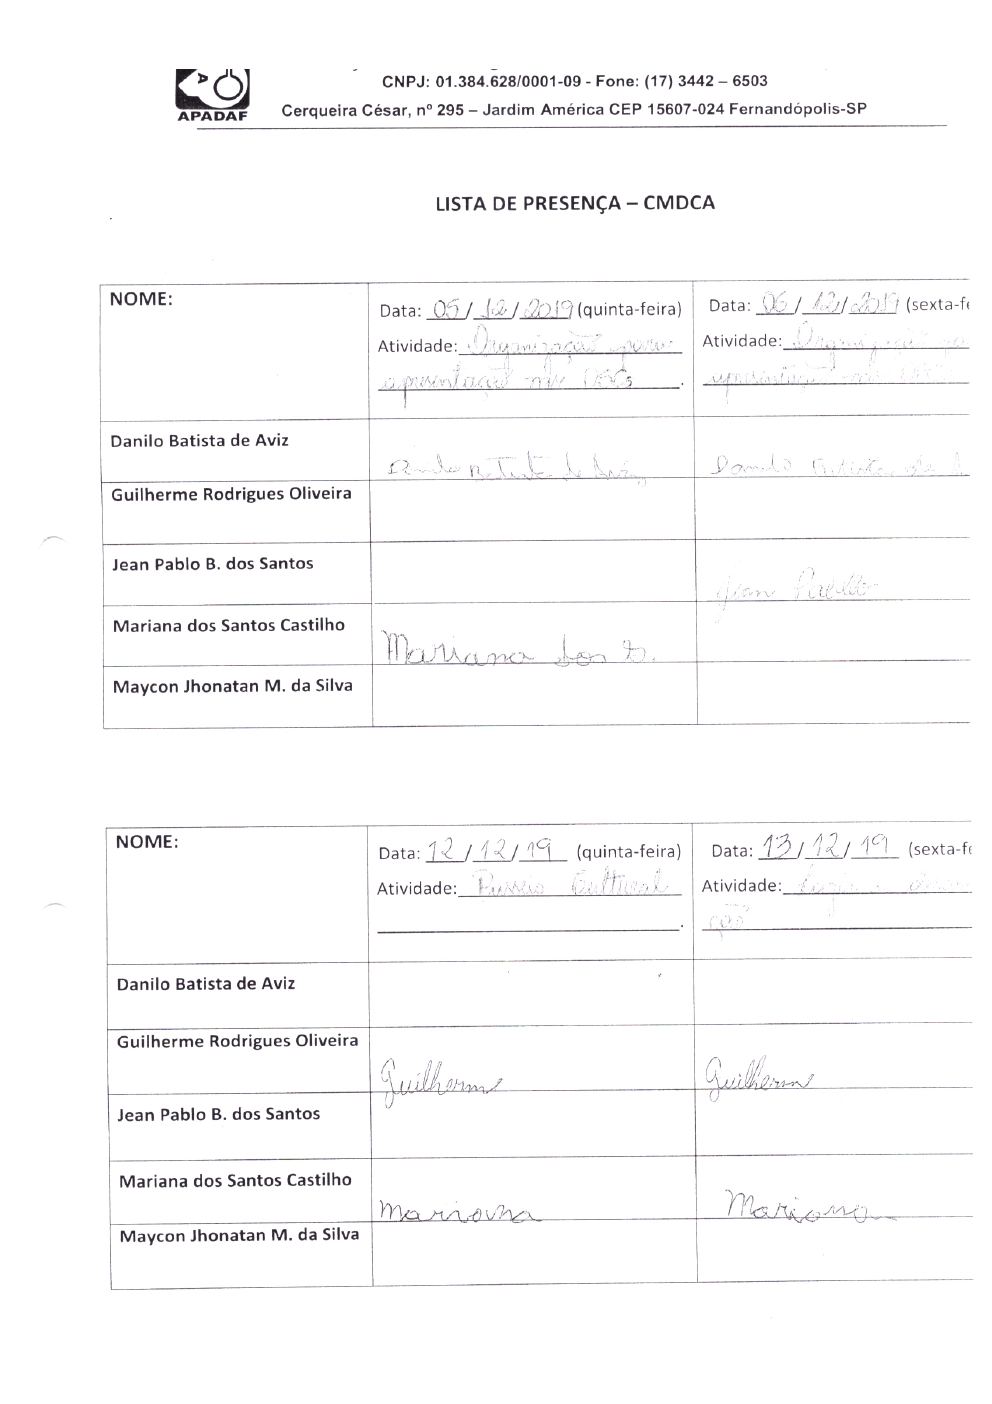 APADAF
CNPJ: 01.384.628/0001-09 - Fone: (17) 3442 – 6503
Cerqueira César, nº 295 – Jardim América CEP 15607-024 Fernandópolis-SP
LISTA DE PRESENÇA – CMDCA
NOME:
Data: 05/12/2019 (quinta-feira)
Atividade: Organização para
apresentação
Data: 06/12/2019 (sexta-fe
Atividade: Organização
apresentação
Danilo Batista de Aviz
Danilo Batista de Aviz
Danilo Batista de
Guilherme Rodrigues Oliveira
Jean Pablo B. dos Santos
Jean Pablo
Mariana dos Santos Castilho
Mariana dos S.
Maycon Jhonatan M. da Silva
NOME:
Data: 12/12/19 (quinta-feira)
Atividade: Passeio Cultural
Data: 13/12/19 (sexta-fe
Atividade:
ção
Danilo Batista de Aviz
Guilherme Rodrigues Oliveira
Guilherme
Guilherme
Jean Pablo B. dos Santos
Mariana dos Santos Castilho
Mariana
Mariana
Maycon Jhonatan M. da Silva